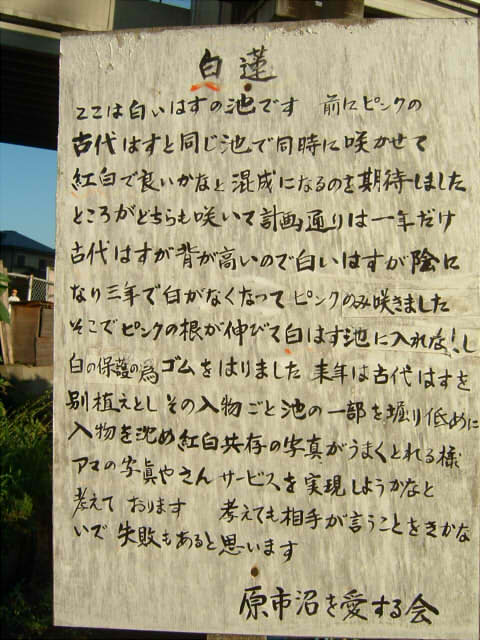 白蓮
ここは白いはすの池です 前にピンクの
古代はすと同じ池で同時に咲かせて
紅白で良いかなと混成になるのを期待しました
ところがどちらも咲いて計画通りは一年だけ
古代はすが背が高いので白いはすが陰に
なり三年で白がなくなって ピンクのみ咲きました
そこでピンクの根が伸びて白はす池に入れな
白の保護の為ゴムをはりました 来年は古代はすを
別植えとし その入物ごと池の一部を堀り低めに
入物を沈め紅白共存の写真がうまくとれる様
アマの写眞やさん サービスを実現しようかなと
考えて おります 考えても相手が言うことをきかな
いで 失敗もあると思います
原市沼を愛する会